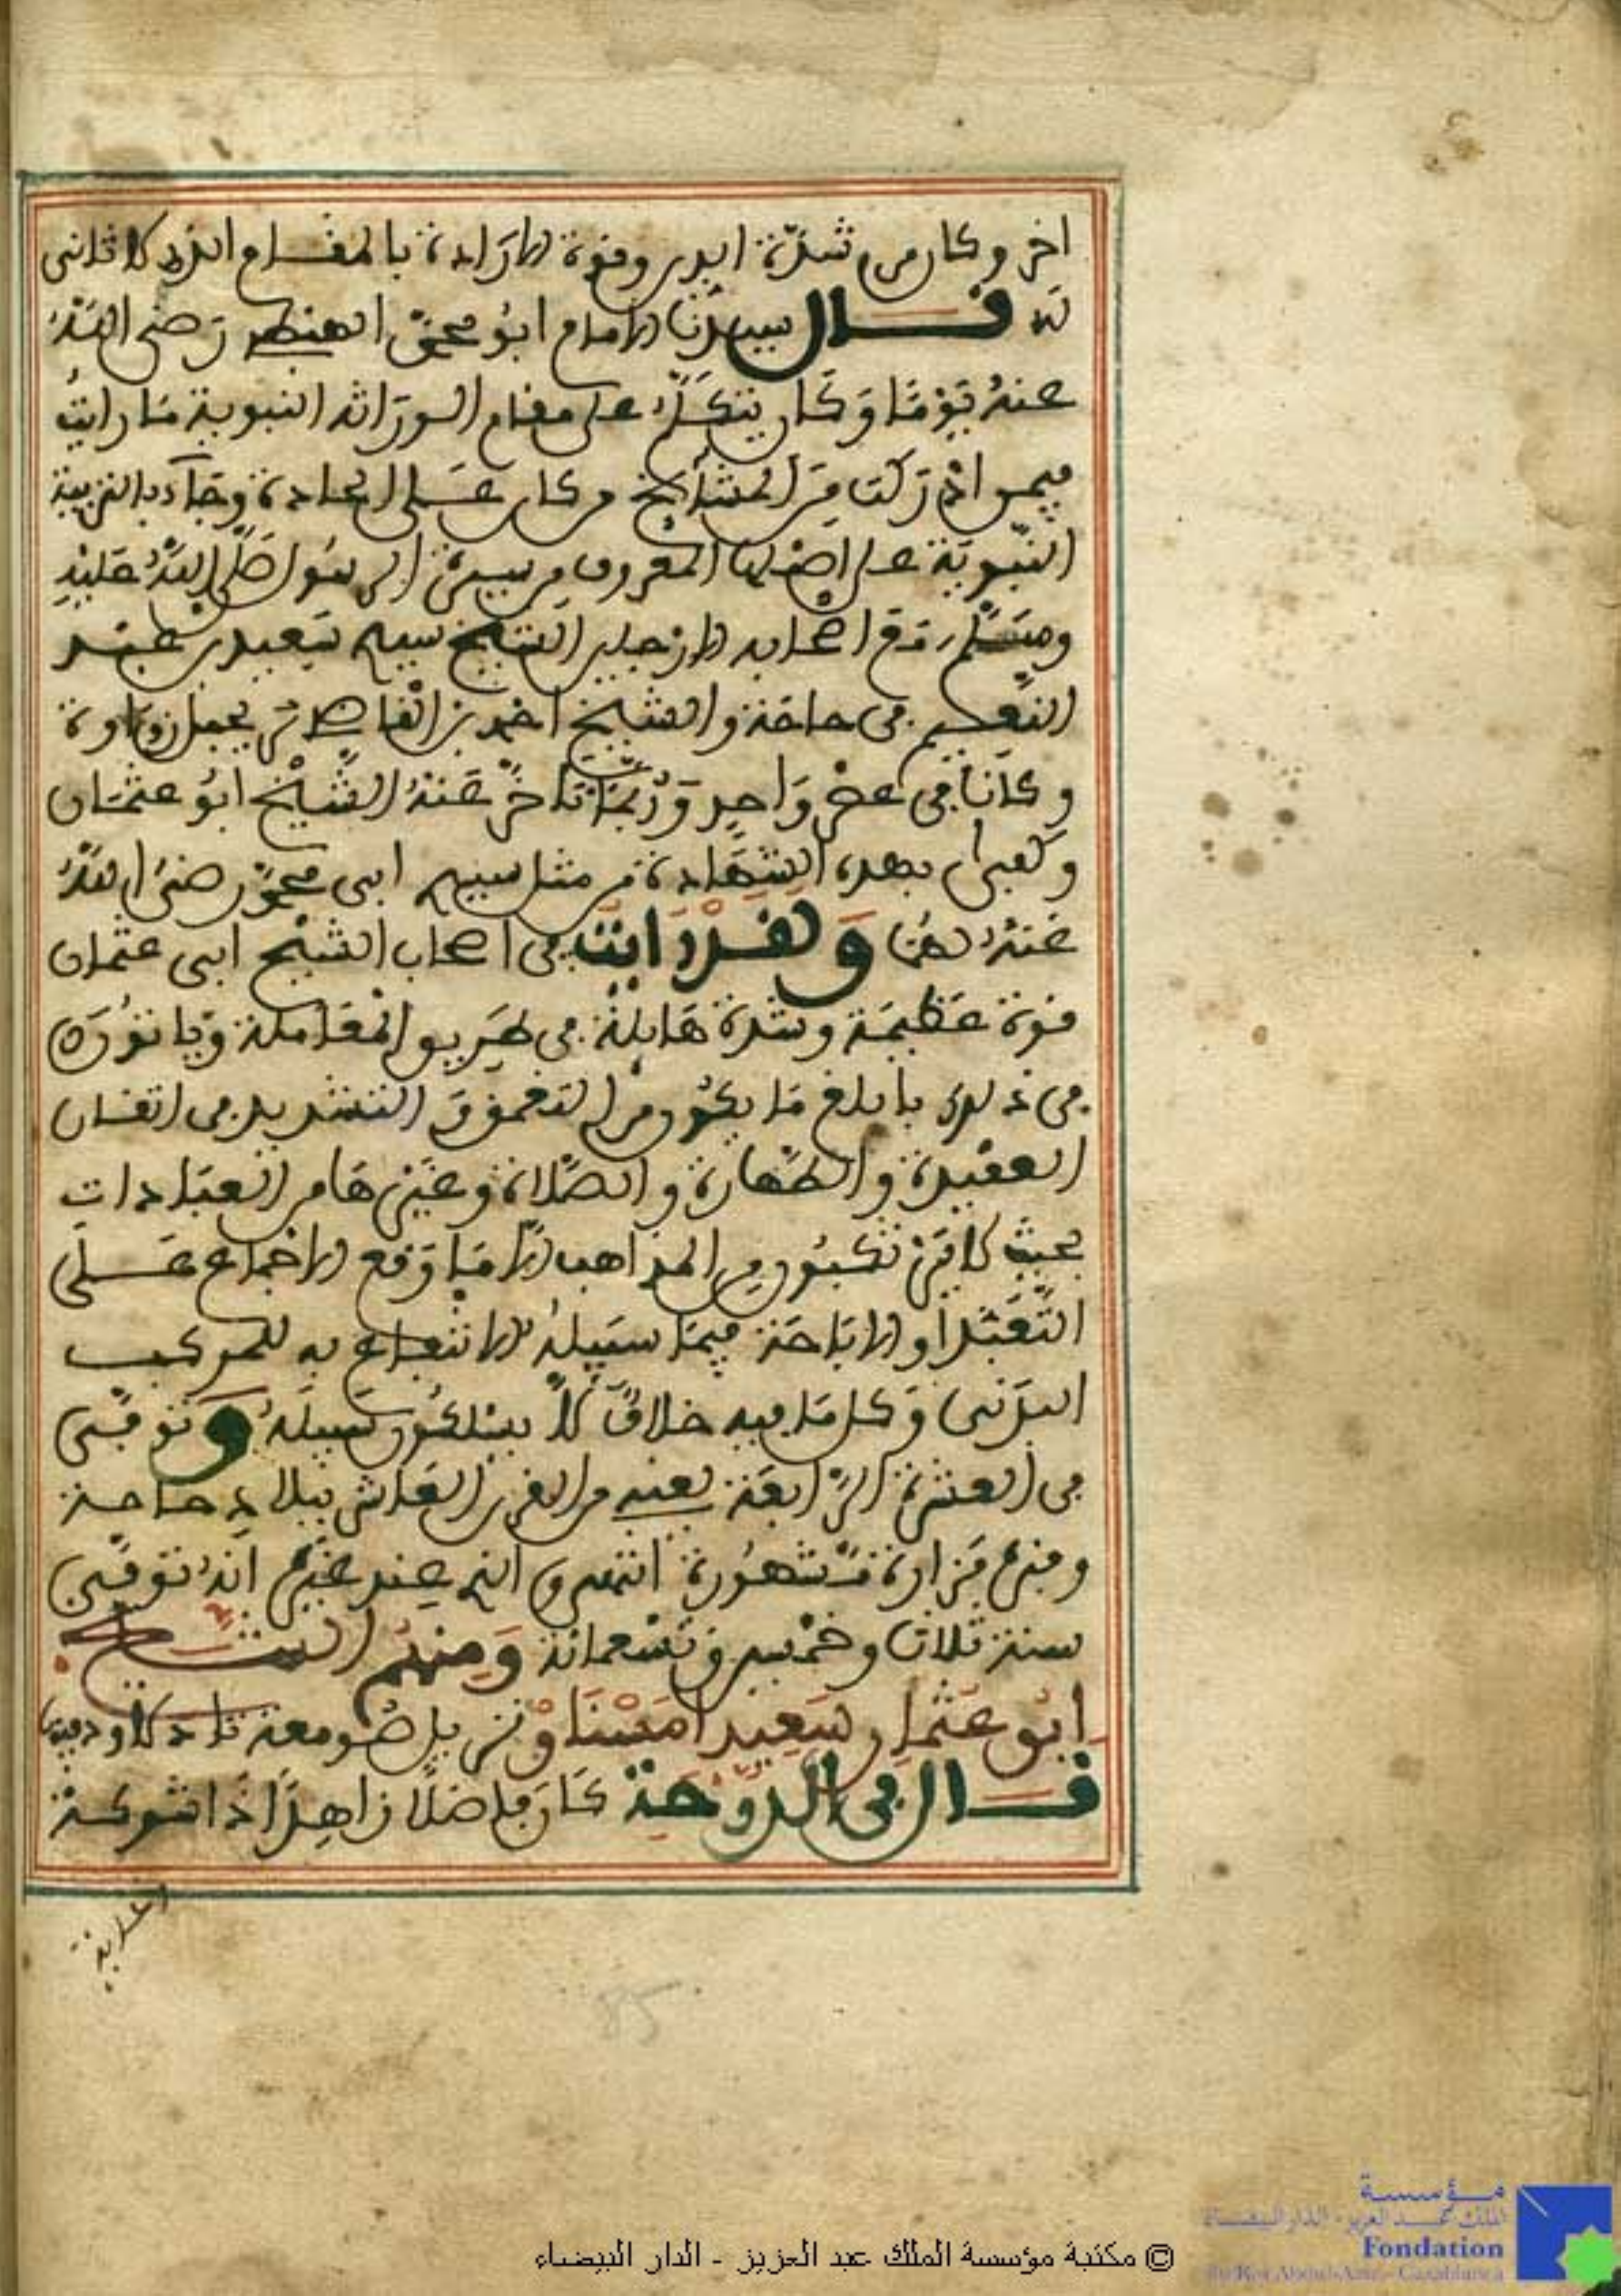 اخر وكان من شدة الدين وقوة الارادة بالمقام الذى لا ثانى
له قال سيدنا الامام ابو محمد الهبطى رضى الله
عنه يوما وكان يتكلم على مقام الوراثة النبوية ما رايت
فيمن ادركت من المشايخ من كان على الجادة وجاء بالتربية
النبوية على اصلها المعروف من سيرة الرسول صلى الله عليه
وسلم مع اصحابه الا رجلين الشيخ سعيد بن عبد
النعيم فى حاحة والشيخ احمد بن القاضى بجبل زواوة
وكانا فى عصر واحد وربما تاخر عنه الشيخ ابو عثمان
وكفى بهذه الشهادة من مثل سيدى ابى محمد رضى الله
عنه لهما ولقد رايت فى اصحاب الشيخ ابى عثمان
قوة عظيمة وشدة هايلة فى طريق المعاملة وياتون
فى ذلك بابلغ ما يكون من التعمق والتشديد فى اتقان
العقيدة والطهارة والصلاة وغيرها من العبادات
بحيث لا يرتكبون من المذاهب الا ما وقع الاجماع على
او الاباحة فيما سبيله الانتفاع به للمركب
البدنى وكل ما فيه خلاف لا يسلكون سبيله وتوفى
فى العشرة الرابعة يعنى من القرن العاشر ببلاد حاحة
وقبره مزارة مشهورة انتهى والذى عند غيره انه توفى
سنة ثلاث وخمسين وتسعمائة ومنهم الشيخ
ابو عثمان سعيد امسناو نزيل صومعة تادلا ودفينها
قال فى الدوحة كان فاضلا زاهدا ذا شوكة
85
© مكتبة مؤسسة الملك عبد العزيز - الدار البيضاء
مؤسسة
الملك عبد العزيز - الدار البيضاء
Fondation
du Roi Abdul-Aziz - Casablanca